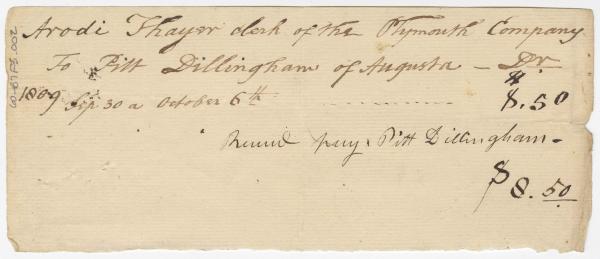 Arodi Thayer clerk of the Plymouth Company
To Pitt Dillingham of Augusta — Dr
1809 Sep 30 a October 6th $8.50
pay. Pitt Dillingham —
$8.50